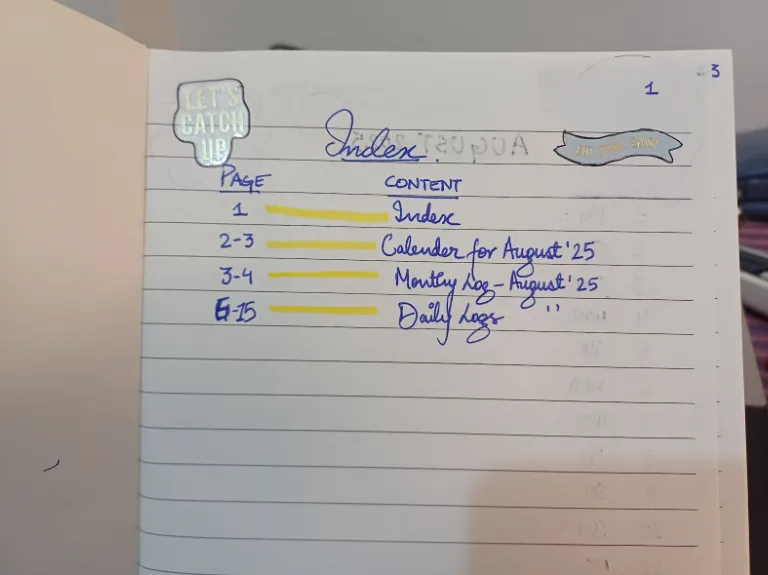 3
1
LET'S
CATCH
UP
Index
PAGE CONTENT
1 Index
2-3 Calender for August '25
3-4 Monthly Log - August '25
5-15 Daily Logs "